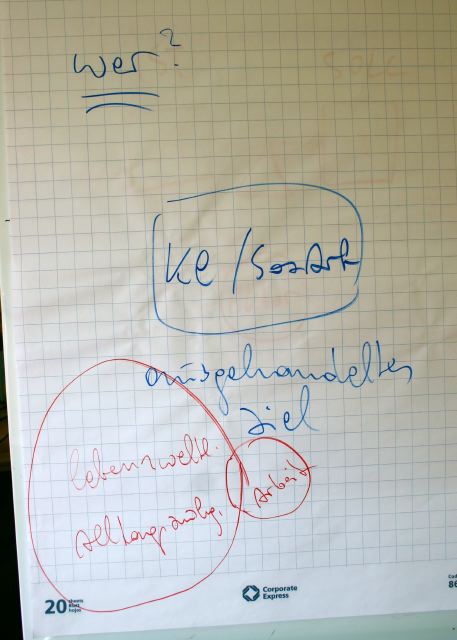 wer?
KE/SozArb
ausgehandeltes
Ziel
lebenswelt.
Arbeit
20 sheets
Blatt
hojas
Corporate
Express
86